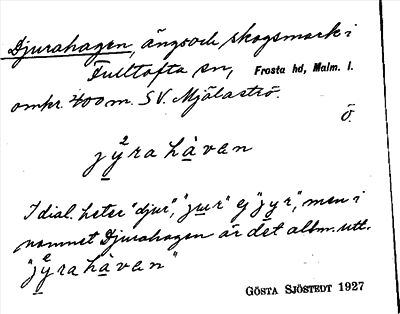 Djurahagen, ängsoch skogsmark i
Fulltofta sn, Frosta hd, Malm. l.
omkr. 400 m. SV. Mjälaströ.
Ö.
jy²rahàvan
I dial. heter "djur", "jur" ej "jyr", men i
namnet Djurahagen är det allm. utt.
"jy²rahàvan"
GÖSTA SJÖSTEDT 1927